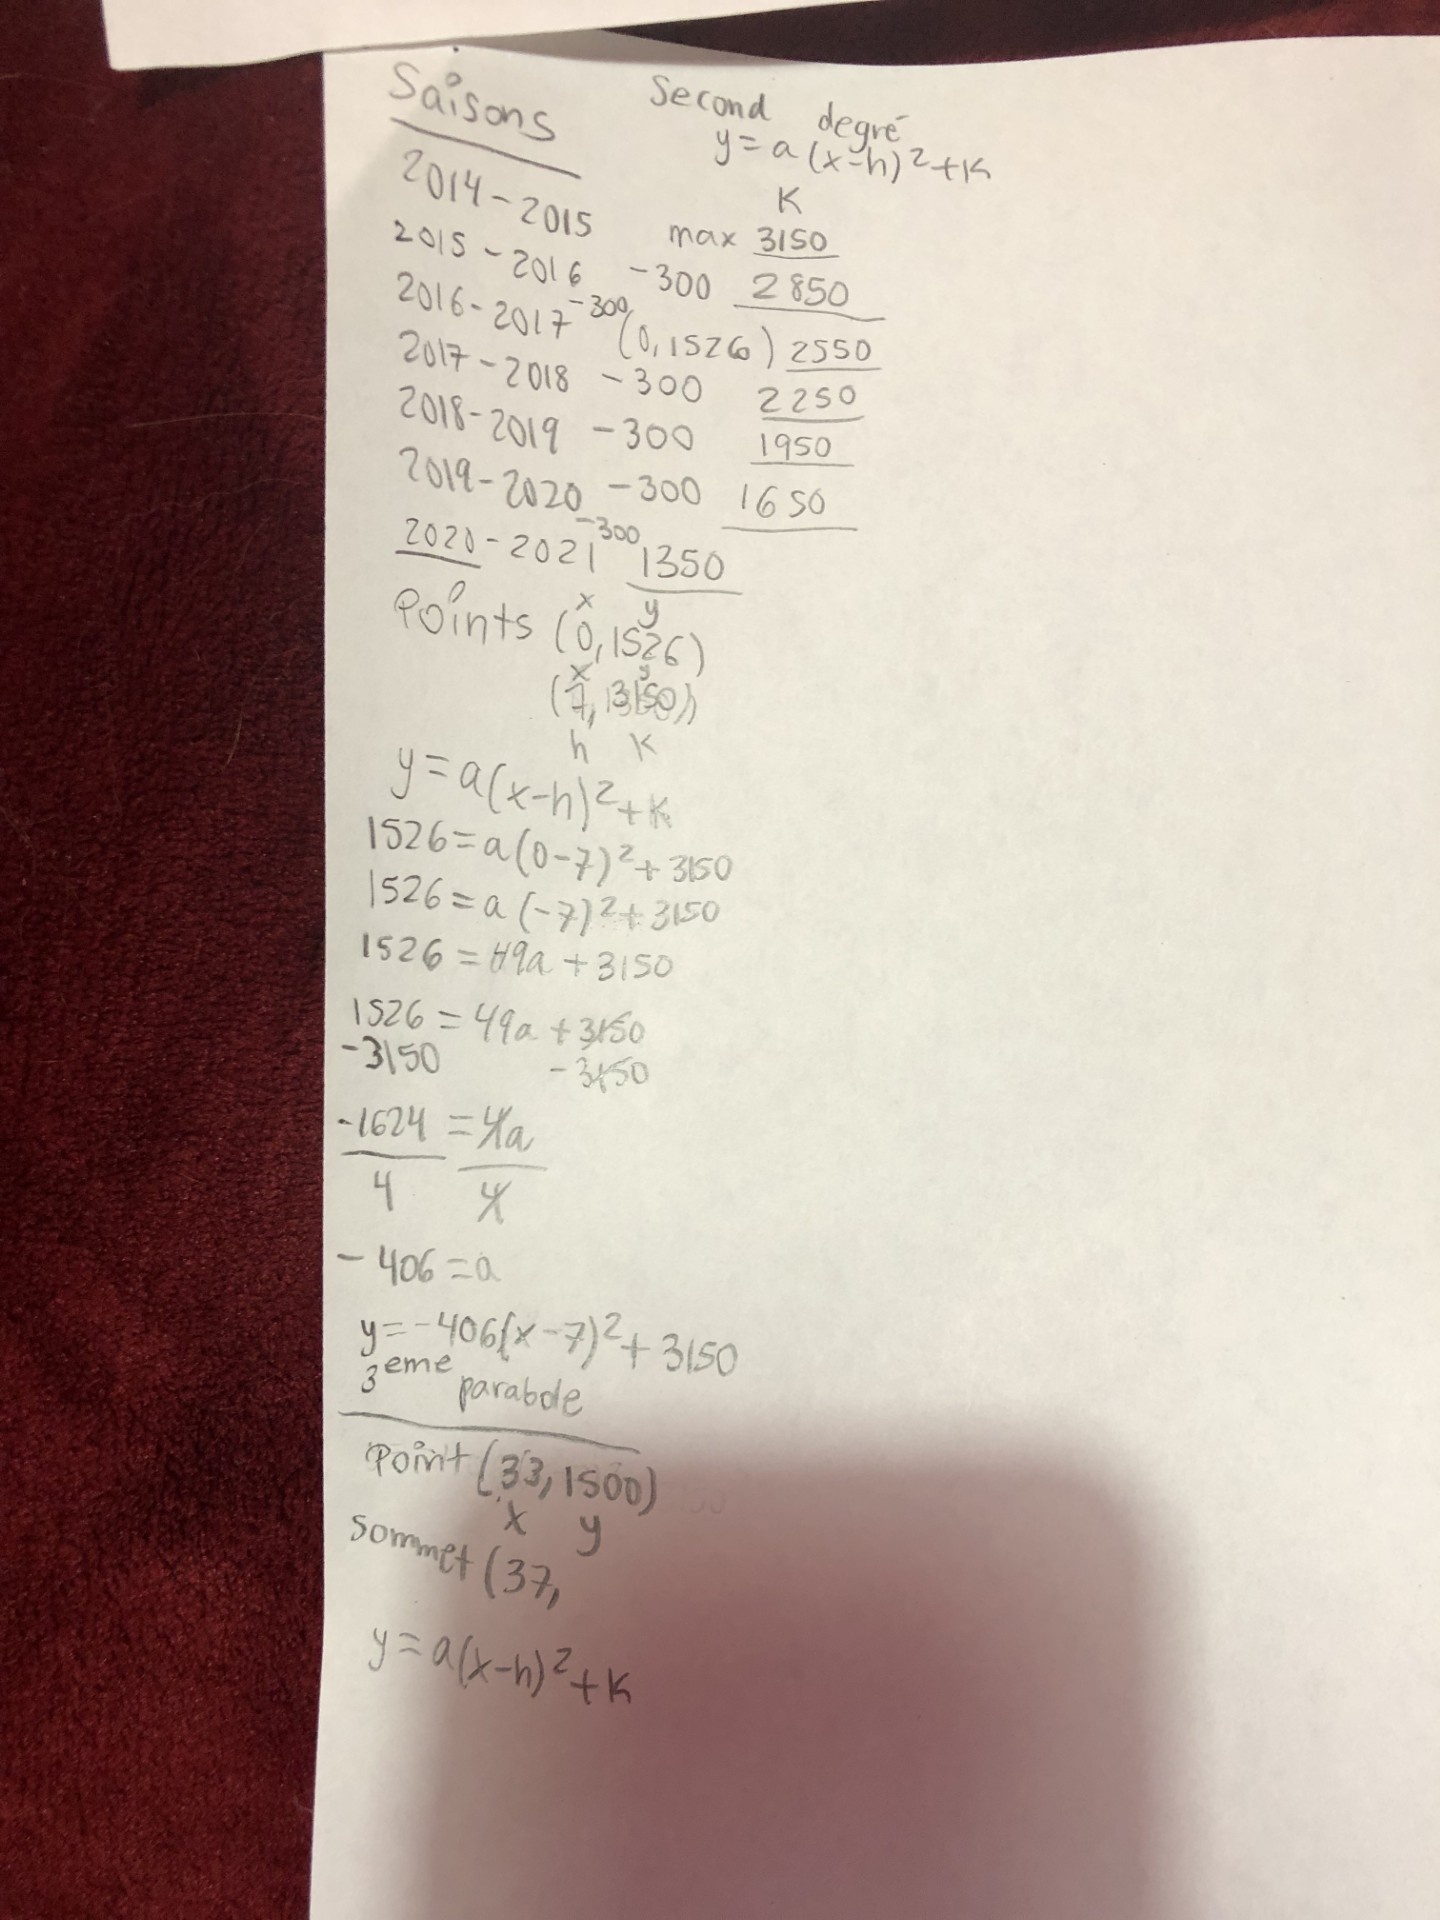 Saisons
Second degré
y=a(x-h)²+K
2014-2015
K
max 3150
2015-2016 -300 2850
2016-2017 -300 (0,1526) 2550
2017-2018 -300 2250
2018-2019 -300 1950
2019-2020 -300 1650
2020-2021 -300 1350
x y
Points (0,1526)
x y
(7,3150)
h K
y=a(x-h)²+K
1526=a(0-7)²+3150
1526=a(-7)²+3150
1526=49a+3150
1526=49a+3150
-3150 -3150
-1624=4a
4 4
-406=a
y=-406(x-7)²+3150
3eme parabole
Point (33,1500)
x y
Sommet (37,
y=a(x-h)²+K